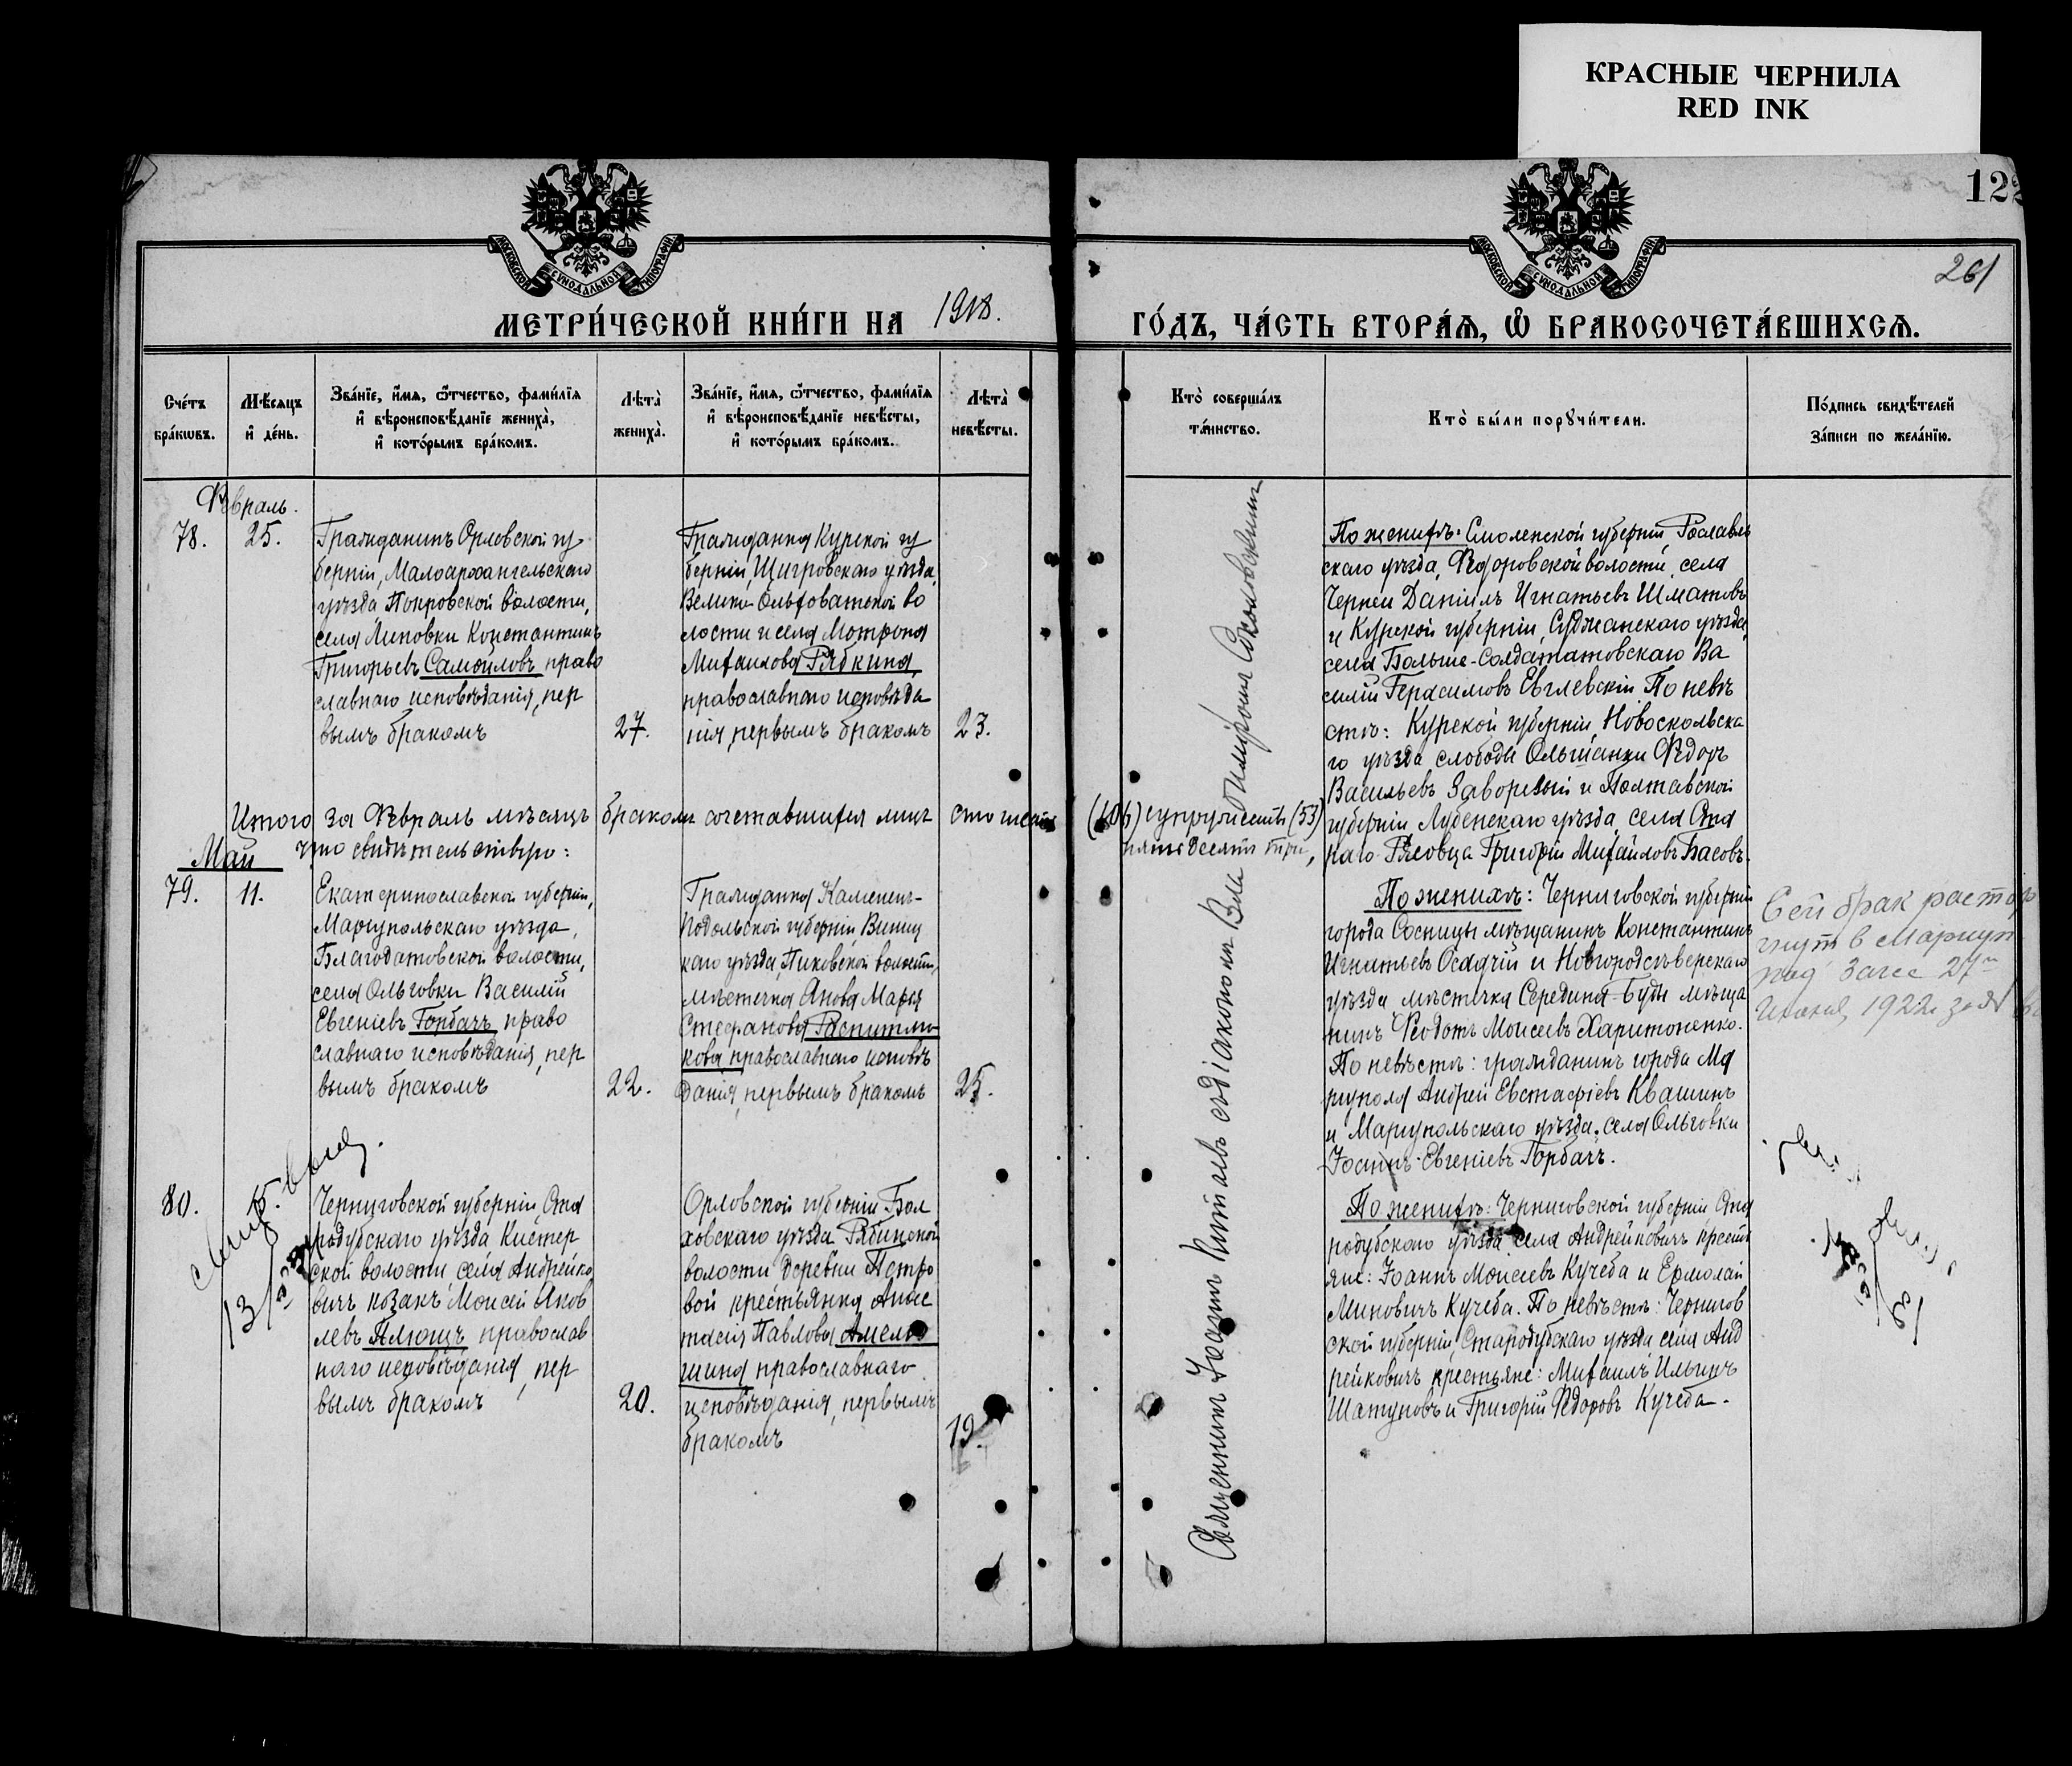 КРАСНЫЕ ЧЕРНИЛА
RED INK
122
261
МОСКОВСКОЙ СѴНОДАЛЬНОЙ ТИПОГРАФІИ
МОСКОВСКОЙ СѴНОДАЛЬНОЙ ТИПОГРАФІИ
МЕТРИ́ЧЕСКОЙ КНИ́ГИ НА 1918.
ГО́ДЪ, ЧА́СТЬ ВТОРА́Ѧ, Ѡ БРАКОСОЧЕТА́ВШИХСѦ.
Сче́тъ
бра́кѡвъ.
Мѣ́сяцъ
и де́нь.
Зва́нїе, и́мя, ѻ́тчество, фами́лїя
и вѣроисповѣ́данїе жениха̀,
и кото́рымъ бра́комъ.
Лѣта̀
жениха̀.
Зва́нїе, и́мя, ѻ́тчество, фами́лїя
и вѣроисповѣ́данїе невѣ́сты,
и кото́рымъ бра́комъ.
Лѣта̀
невѣ́сты.
Кто̀ соверша́лъ
та́инство.
Кто̀ бы́ли порꙋчи́тели.
По́дпись свидѣ́телей
за́писи по жела́нїю.
Февраль.
78.
25.
Гражданинъ Орловской гу
берніи, Малоархангельскаго
уѣзда Покровской волости,
села Липовки Константинъ
Григорьевъ Самойловъ право
славнаго исповѣданія, пер
вымъ бракомъ
27.
Гражданка Курской гу
берніи, Щигровскаго уѣзда,
Велико-Ольховатской во
лости и села Матрона
Михаилова Рябкина,
православнаго исповѣда
нія, первымъ бракомъ
23.
По женихѣ: Смоленской губерніи, Рославль
скаго уѣзда, Ѳедоровской волости, села
Черней Даніилъ Игнатьевъ Шматовъ
и Курской губерніи, Суджанскаго уѣзда,
села Больше-Солдататовскаго Ва
силій Герасимовъ Евглевскій По невѣ
стѣ: Курской губерніи, Новоскольска
го уѣзда, слободы Ольшанки Ѳедоръ
Васильевъ и Полтавской
губерніи Лубенскаго уѣзда, села
Григорій Михайловъ Басовъ.
Итого за Февраль мѣсяцъ бракомъ сочетавшихся лицъ сто шесть (106) супружествъ (53)
пятьдесятъ три,
что свидѣтельствую:
Май
79.
11.
Екатеринославской губерніи,
Маріупольскаго уѣзда,
Благодатовской волости,
села Ольговки Василій
Евгеніевъ Горбачъ право
славнаго исповѣданія, пер
вымъ бракомъ
22.
Гражданка Каменецъ-
Подольской губерніи, Винниц
каго уѣзда, Пиковской волости,
мѣстечка Янова Марія
Стефанова
православнаго исповѣ
данія, первымъ бракомъ
25.
По женихѣ: Черниговской губерніи
города Сосницы мѣщанинъ Константинъ
Игнатьевъ Осадчій и Новгородсѣверскаго
уѣзда мѣстечка Середина-Буды мѣща
нинъ Ѳеодотъ Моисеевъ Харитоненко.
По невѣстѣ: гражданинъ города Ма
ріуполя Андрей Евстафіевъ Квашинъ
и Маріупольскаго уѣзда, села Ольговки
Іоаннъ Евгеніевъ Горбачъ.
Сей брак растор
гнут в Мариуп
27
1922
80.
15.
Черниговской губерніи, Ста
родубскаго уѣзда Кистер
ской волости села Андрейко
вичъ козакъ Моисей Яков
левъ Плющъ православ
наго исповѣданія, пер
вымъ бракомъ
20.
Орловской губерніи Бол
ховскаго уѣзда Рябинской
волости деревни Петро
вой крестьянка Анас
тасія Павлова
православнаго
исповѣданія, первымъ
бракомъ
19.
По женихѣ: Черниговской губерніи Ста
родубскаго уѣзда села Андрейковичъ крестья
не: Іоаннъ Моисеевъ Кучеба и Ермолай
Миновичъ Кучеба. По невѣстѣ: Чернигов
ской губерніи, Стародубскаго уѣзда села Анд
рейковичъ крестьяне: Михаилъ Ильинъ
Шатуновъ и Григорій Ѳедоровъ Кучеба.
Священникъ Іоаннъ съ діакономъ